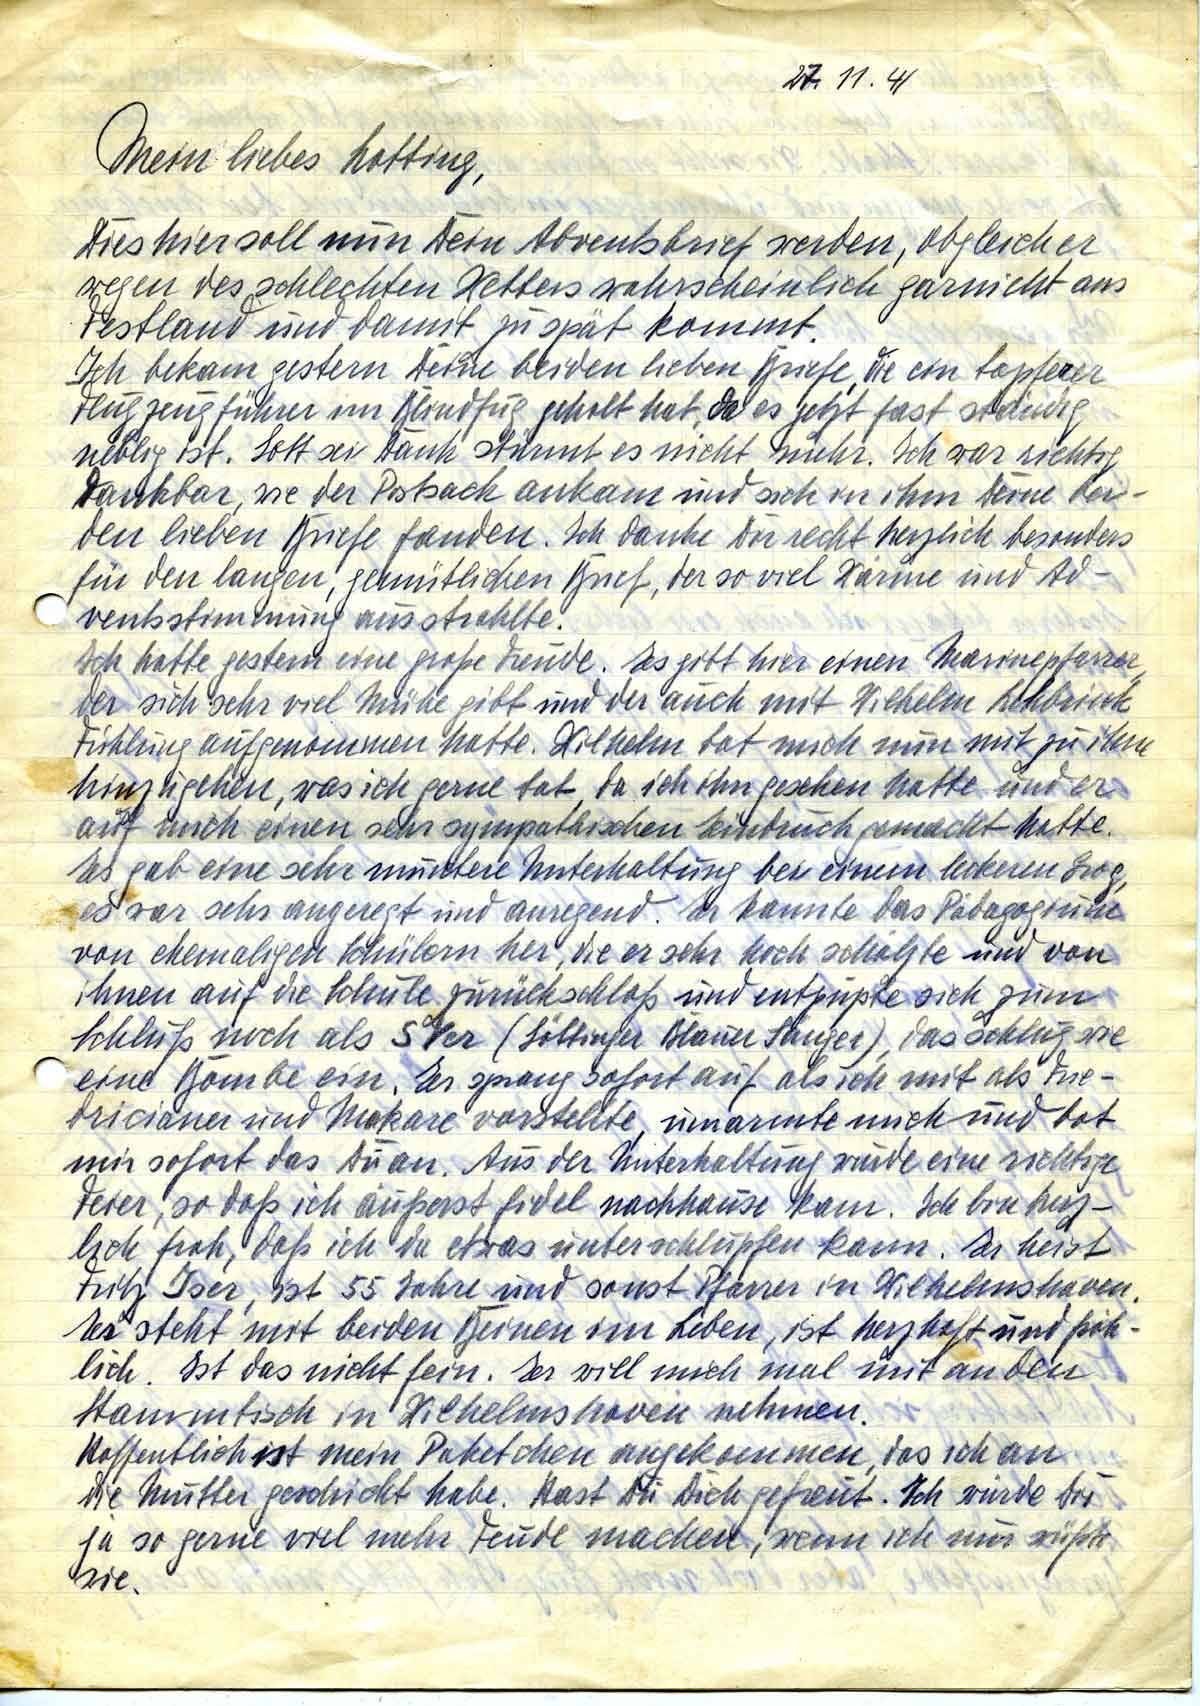 27. 11. 41
Mein liebes Lotting,
Dies hier soll nun Dein Adventsbrief werden, obgleich er
wegen des schlechten Wetters wahrscheinlich garnicht aus
Festland und damit zu spät kommt.
Ich bekam gestern Deine beiden lieben Briefe, die ein tapferer
Flugzeugführer im Blindflug geholt hat, da es jetzt fast ständig
neblig ist. Gott sei Dank stürmt es nicht mehr. Ich war richtig
dankbar, wie der Postsack ankam und sich in ihm Deine bei-
den lieben Briefe fanden. Ich danke Dir recht herzlich besonders
für den langen, gemütlichen Brief, der so viel Wärme und Ad-
ventsstimmung ausstrahlte.
Ich hatte gestern eine große Freude. Es gibt hier einen Marinepfarrer,
der sich sehr viel Mühe gibt und der auch mit Wilhelm
Fühlung aufgenommen hatte. Wilhelm bat mich nun mit zu ihm
hinzugehen, was ich gerne tat, da ich ihn gesehen hatte und er
auf mich einen sehr sympathischen Eindruck gemacht hatte.
Es gab eine sehr muntere Unterhaltung bei einem leckeren Grog,
es war sehr angeregt und anregend. Er kannte das Pädagogium
von ehemaligen Schülern her, die er sehr hoch schätzte und von
ihnen auf die Schule zurückschloß und entpupte sich zum
Schluß noch als (Göttinger Blauer Sänger), das schlug wie
eine Bombe ein. Er sprang sofort auf als ich mit als Frie-
dricianer und Makare vorstellte, umarmte mich und bot
mir sofort das Du an. Aus der Unterhaltung wurde eine richtige
Feier, so daß ich äußerst fidel nachhause kam. Ich bin herz-
lich froh, daß ich da etwas unterschlupfen kann. Er heist
Fritz Iser, ist 55 Jahre und sonst Pfarrer in Wilhelmshaven.
Er steht mit beiden Beinen im Leben, ist herzhaft und fröh-
lich. Ist das nicht fein. Er will mich mal mit an den
Stammtisch in Wilhelmshaven nehmen.
Hoffentlich ist mein Paketchen angekommen, das ich an
die Mutter geschickt habe. Hast Du Dich gefreut. Ich würde Dir
ja so gerne viel mehr Feude machen, wenn ich nur wüßte
wie.